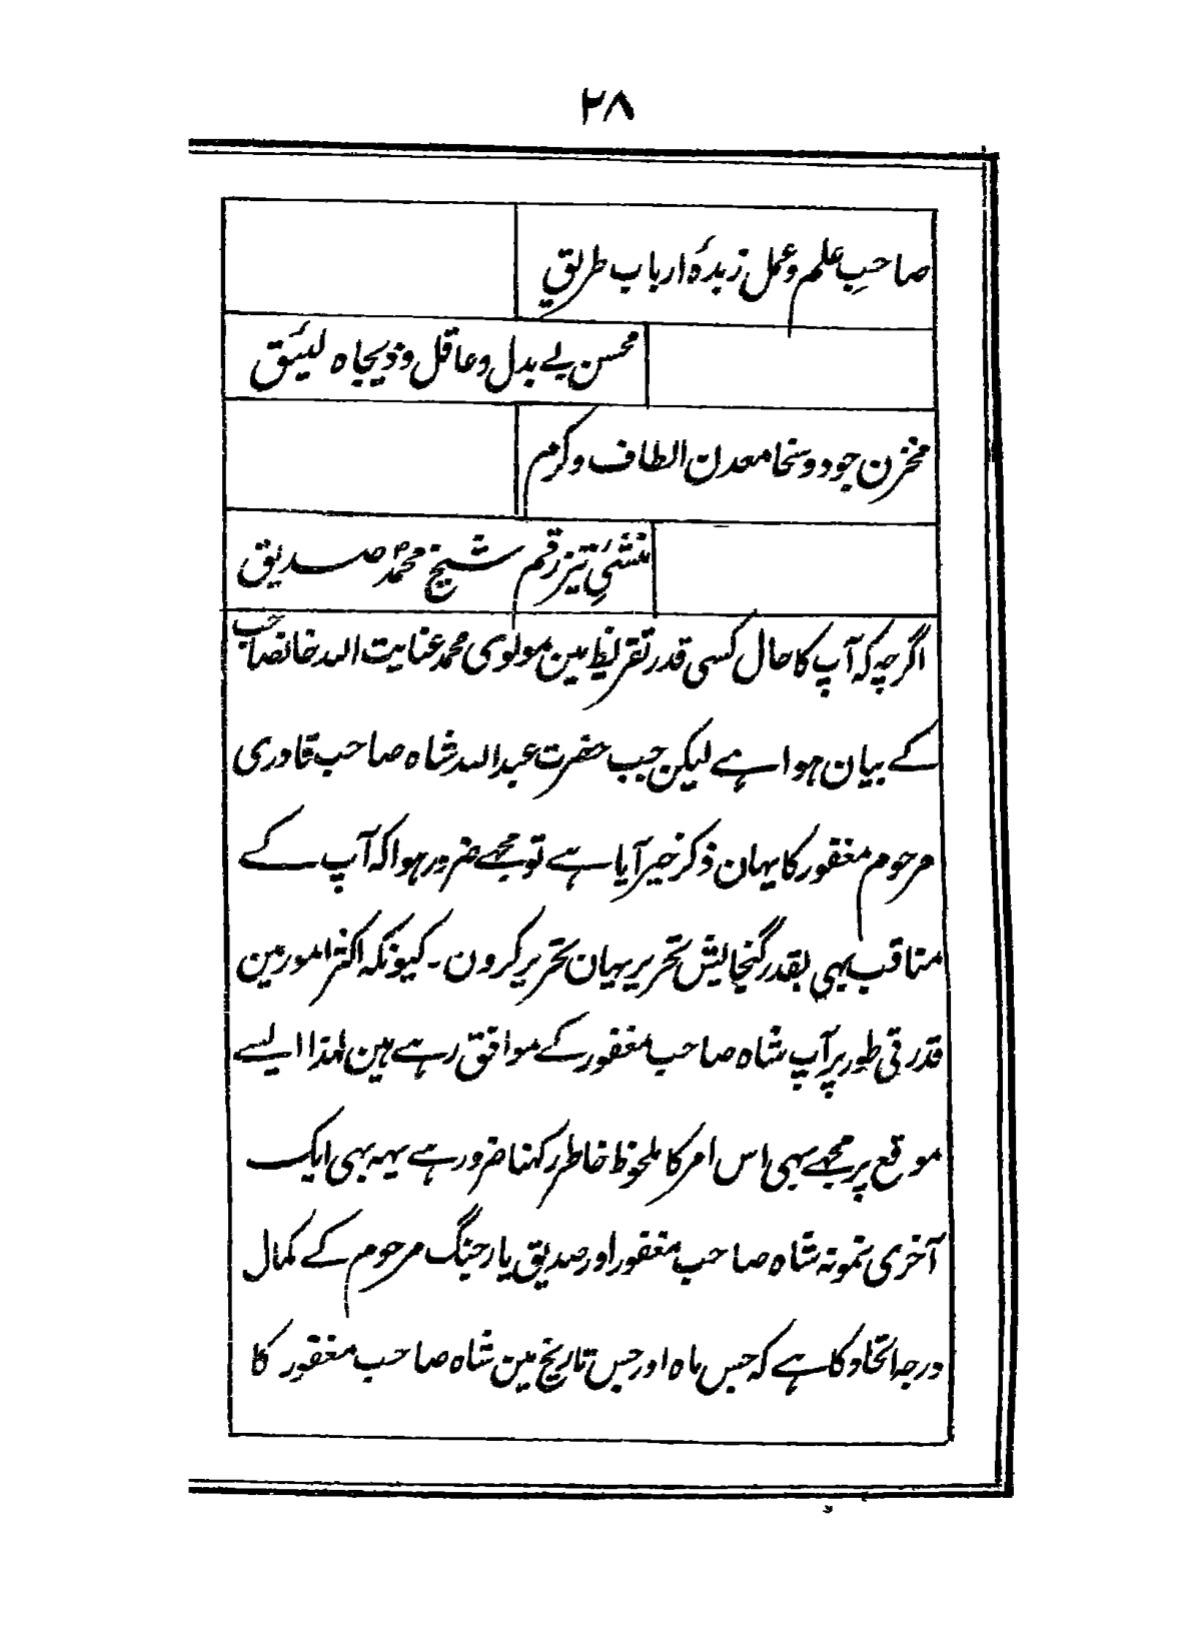 ۲۸
صاحبِ علم و عمل زبدۂ ارباب طریق
محسن بے بدل و عاقل و ذیجاہ لئیق
مخزن جود و سخا معدن الطاف و کرم
منشیِ تیز رقم شیخ محمدؐ صدیق
اگرچہ کہ آپ کا حال کسی قدر تقریظ مین مولوی محمد عنایت اللہ خانصاحب
کے بیان ہوا ہے لیکن جب حضرت عبداللہ شاہ صاحب قادری
مرحوم مغفور کا یہان ذکر خیر آیا ہے تو مجھے ضرور ہوا کہ آپ کے
مناقب بہی بقدر گنجایش تحریر یہان تحریر کرون ۔ کیونکہ اکثر امور مین
قدرتی طور پر آپ شاہ صاحب مغفور کے موافق رہے ہین لہذا ایسے
موقع پر مجھے بہی اس امر کا ملحوظ خاطر رکہنا ضرور ہے یہہ بہی ایک
آخری نمونہ شاہ صاحب مغفور اور صدیق یار جنگ مرحوم کے کمال
درجہ اتحاد کا ہے کہ جس ماہ اور جس تاریخ مین شاہ صاحب مغفورِ کا